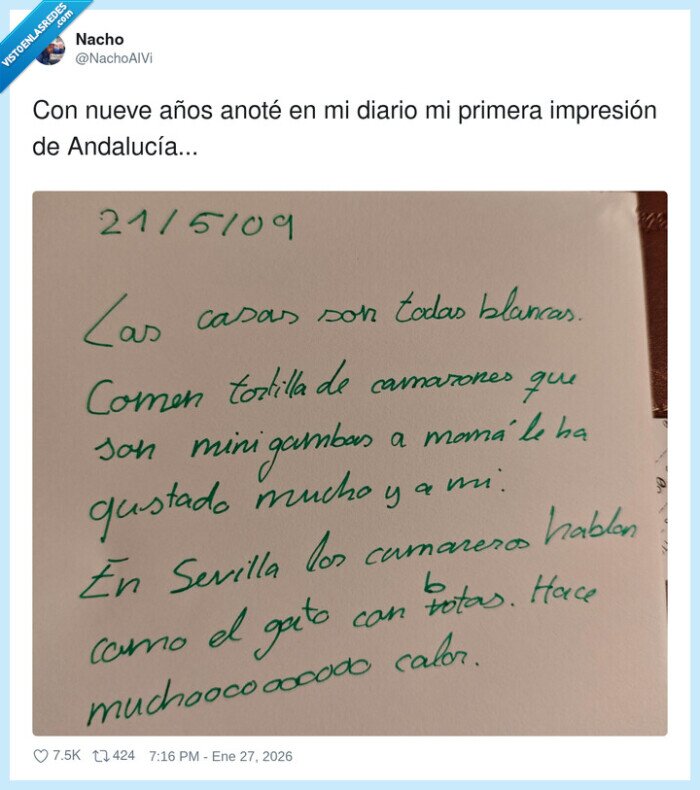 VISTOENLASREDES
.com
Nacho
@NachoAlVi
Con nueve años anoté en mi diario mi primera impresión
de Andalucía...
21/5/09
Las casas son todas blancas.
Comen tortilla de camarones que
son mini gambas a mamá le ha
gustado mucho y a mi.
En Sevilla los camareros hablan
como el gato con botas. Hace
muchoooooooooo calor.
7.5K 424 7:16 PM - Ene 27, 2026